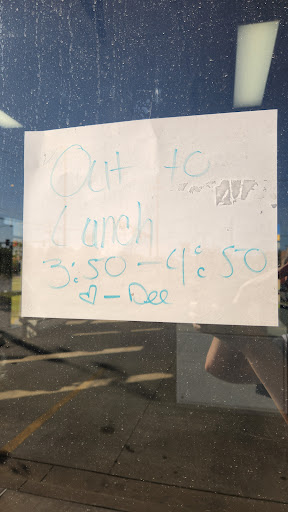 Out to
Lunch
3:50 - 4:50
♡ - Dee